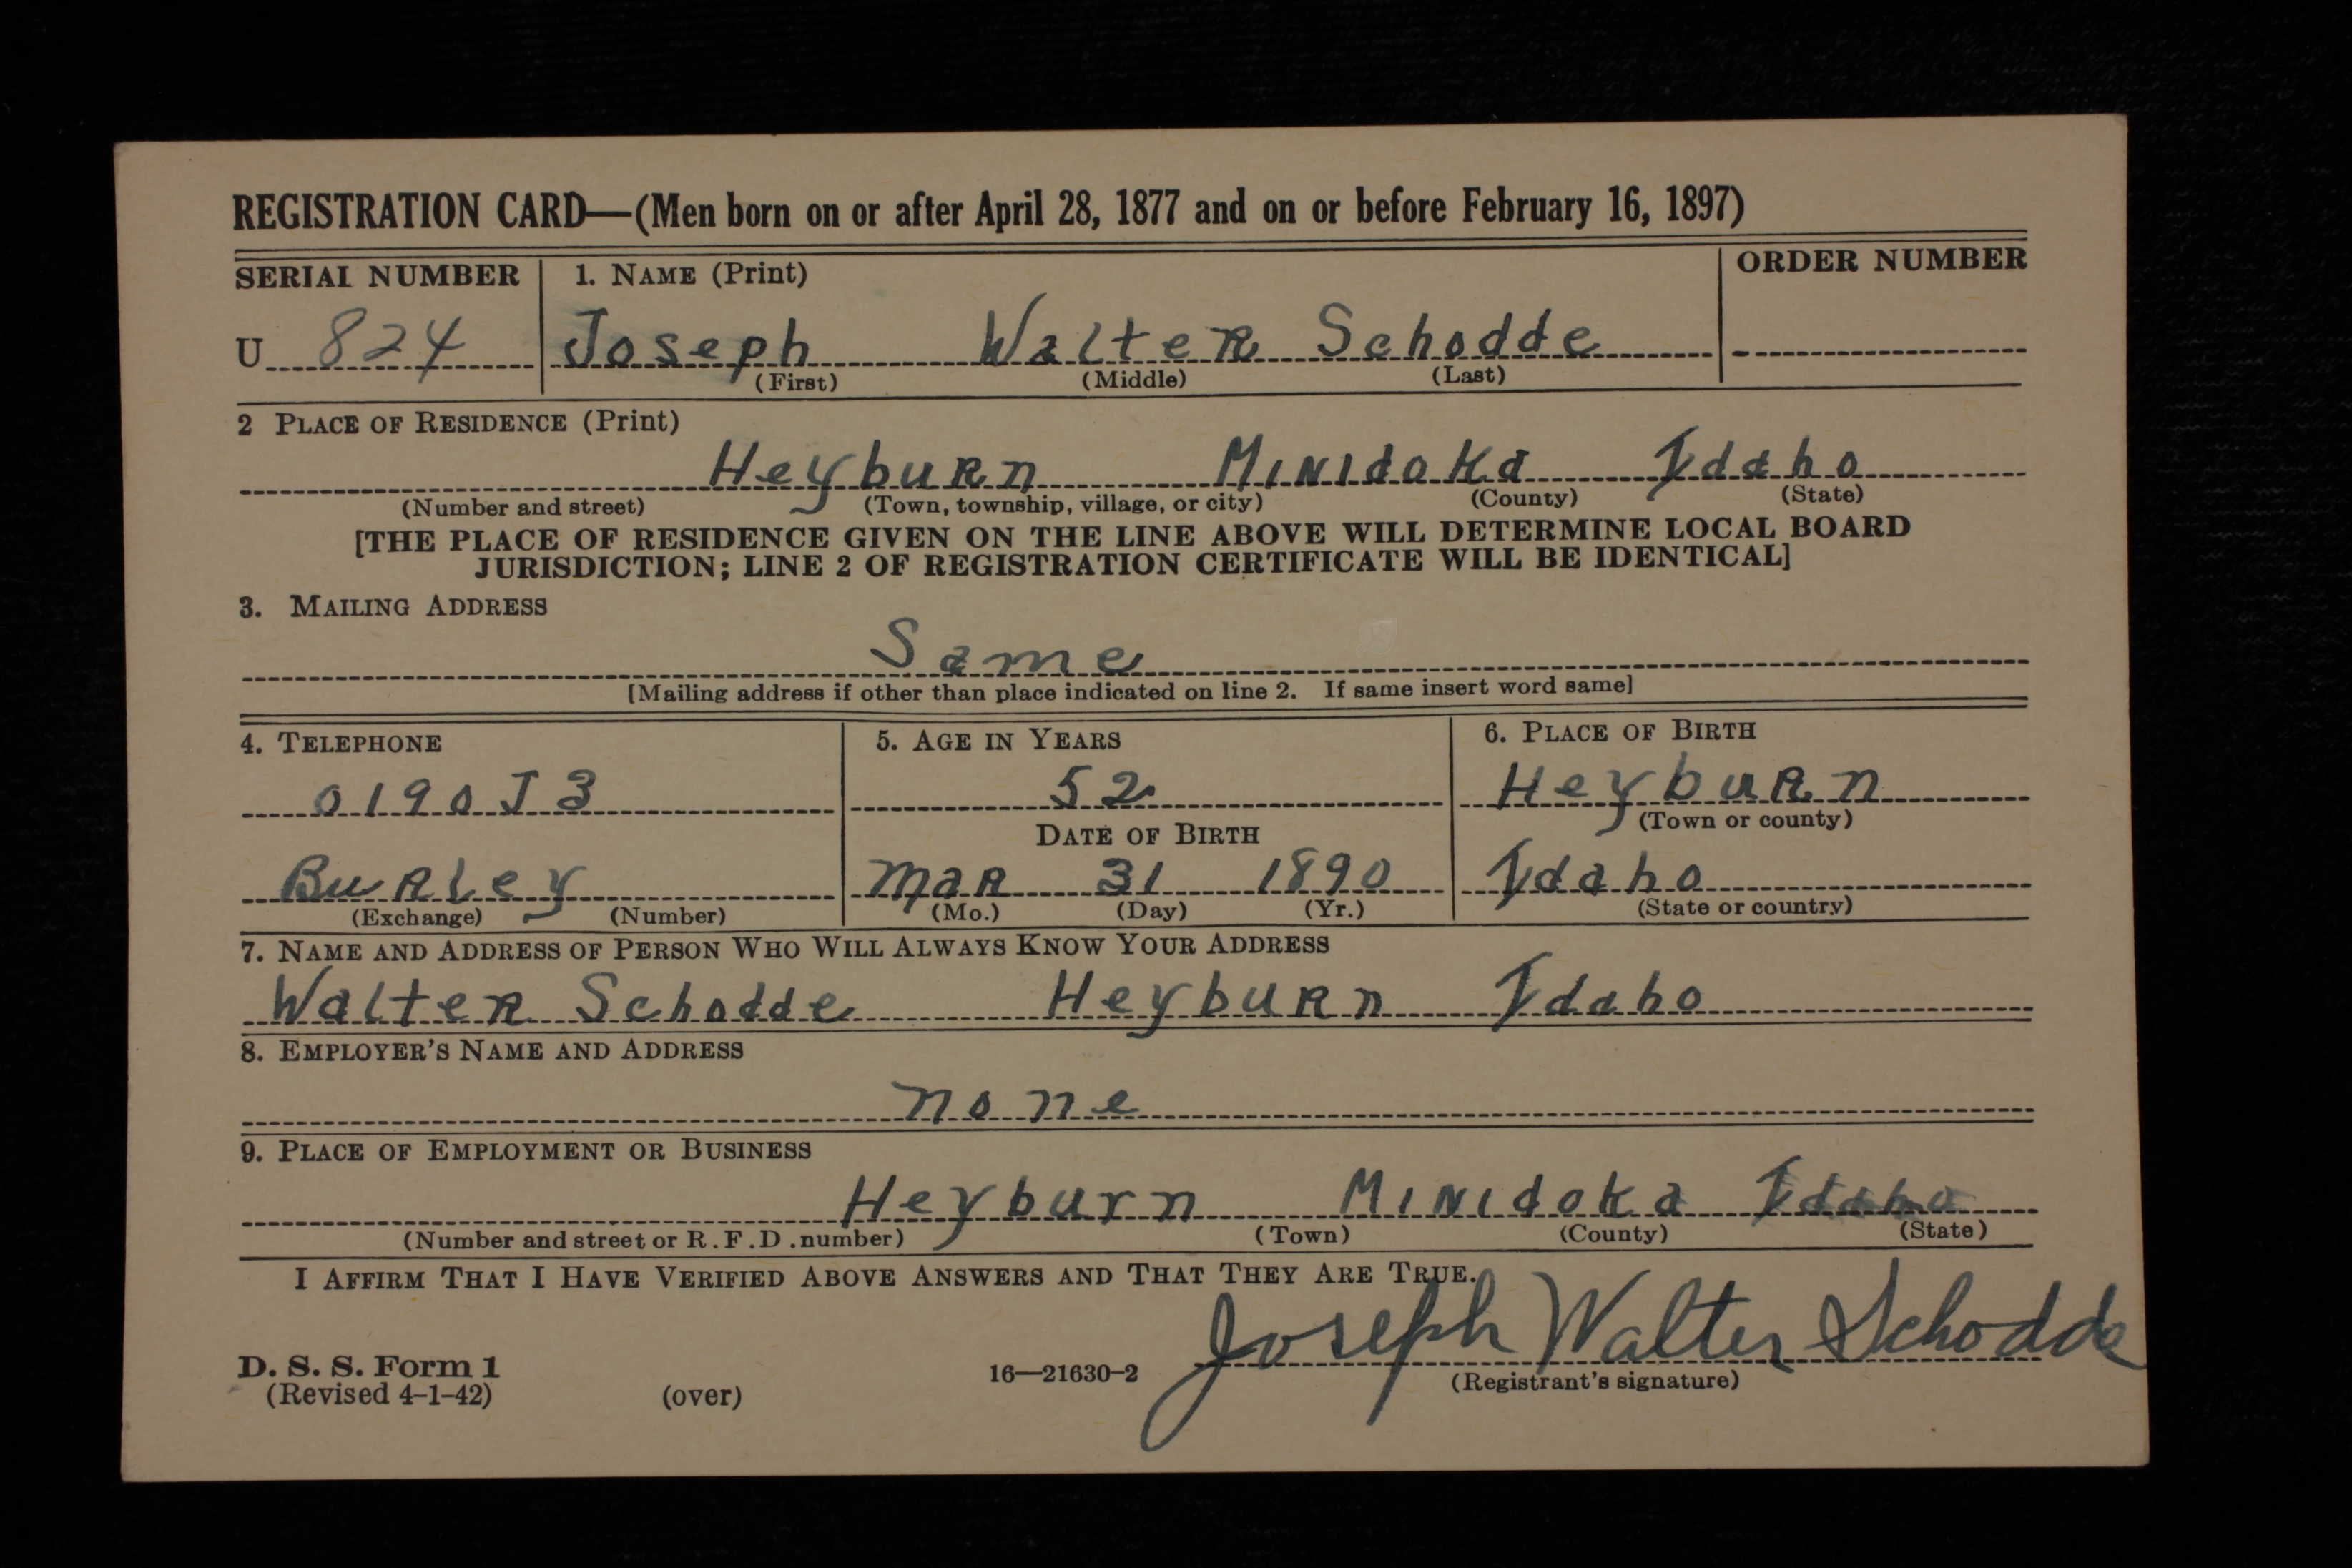 REGISTRATION CARD—(Men born on or after April 28, 1877 and on or before February 16, 1897)
SERIAL NUMBER 1. NAME (Print) ORDER NUMBER
U 824 Joseph Walter Schodde
(First) (Middle) (Last)
2 PLACE OF RESIDENCE (Print)
Heyburn Minidoka Idaho
(Number and street) (Town, township, village, or city) (County) (State)
[THE PLACE OF RESIDENCE GIVEN ON THE LINE ABOVE WILL DETERMINE LOCAL BOARD
JURISDICTION; LINE 2 OF REGISTRATION CERTIFICATE WILL BE IDENTICAL]
3. MAILING ADDRESS
Same
[Mailing address if other than place indicated on line 2. If same insert word same]
4. TELEPHONE 5. AGE IN YEARS 6. PLACE OF BIRTH
0190J3 52 Heyburn
DATE OF BIRTH (Town or county)
Burley Mar 31 1890 Idaho
(Exchange) (Number) (Mo.) (Day) (Yr.) (State or country)
7. NAME AND ADDRESS OF PERSON WHO WILL ALWAYS KNOW YOUR ADDRESS
Walter Schodde Heyburn Idaho
8. EMPLOYER'S NAME AND ADDRESS
none
9. PLACE OF EMPLOYMENT OR BUSINESS
Heyburn Minidoka Idaho
(Number and street or R.F.D. number) (Town) (County) (State)
I AFFIRM THAT I HAVE VERIFIED ABOVE ANSWERS AND THAT THEY ARE TRUE.
Joseph Walter Schodde
D. S. S. Form 1 16—21630-2 (Registrant's signature)
(Revised 4-1-42) (over)